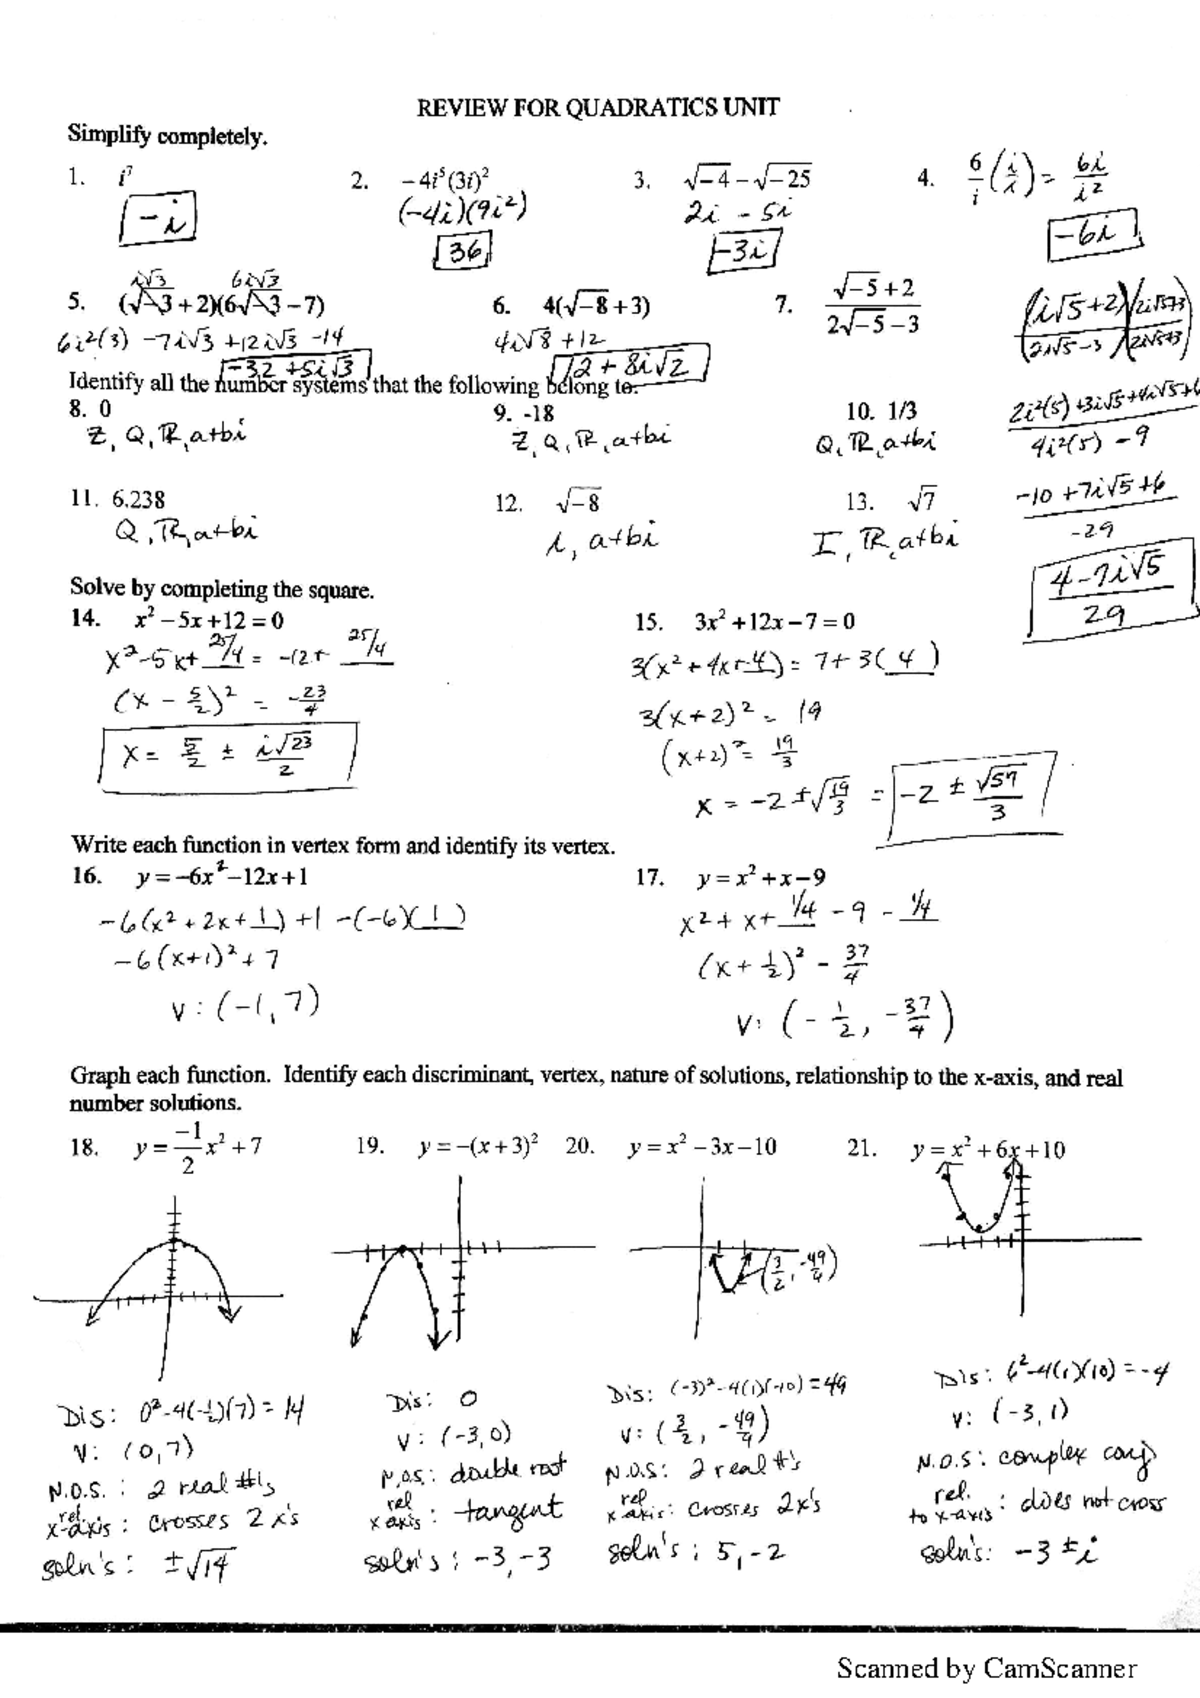 REVIEW FOR QUADRATICS UNIT
Simplify completely.
1. i⁷
-i
2. -4i⁵(3i)²
(-4i)(9i²)
36
3. √-4 - √-25
2i - 5i
-3i
4. 6/i (i/i) = 6i/i²
-6i
i√3 6i√3
5. (√-3 + 2)(6√-3 - 7)
6i²(3) -7i√3 +12i√3 -14
-32 +5i√3
6. 4(√-8 + 3)
4i√8 +12
12 + 8i√2
7. (√-5 + 2)/(2√-5 - 3)
(i√5+2)/(2i√5-3) (2i√5+3)/(2i√5+3)
(2i²(5) +3i√5+4i√5+6)/(4i²(5) -9)
(-10 +7i√5 +6)/-29
(4-7i√5)/29
Identify all the number systems that the following belong to.
8. 0
Z, Q, R, a+bi
9. -18
Z, Q, R, a+bi
10. 1/3
Q, R, a+bi
11. 6.238
Q, R, a+bi
12. √-8
i, a+bi
13. √7
I, R, a+bi
Solve by completing the square.
14. x² - 5x + 12 = 0
x² -5x+ 25/4 = -12+ 25/4
(x - 5/2)² = -23/4
x = 5/2 ± i√23/2
15. 3x² + 12x - 7 = 0
3(x² + 4x + 4) = 7 + 3( 4 )
3(x+2)² = 19
(x+2)² = 19/3
x = -2 ±√19/3 = -2 ± √57/3
Write each function in vertex form and identify its vertex.
16. y = -6x² -12x+1
-6(x² + 2x + 1) +1 -(-6)( 1 )
-6(x+1)² + 7
V: (-1, 7)
17. y = x² + x - 9
x² + x + 1/4 - 9 - 1/4
(x + 1/2)² - 37/4
V: (- 1/2, -37/4)
Graph each function. Identify each discriminant, vertex, nature of solutions, relationship to the x-axis, and real
number solutions.
18. y = -1/2 x² + 7
19. y = -(x + 3)²
20. y = x² - 3x - 10
21. y = x² + 6x + 10
(3/2, -49/4)
Dis: 0²-4(-1/2)(7) = 14
V: (0,7)
N.O.S. : 2 real #'s
rel x-axis : crosses 2 x's
soln's : ±√14
Dis: 0
V: (-3,0)
N.O.S: double root
rel x axis : tangent
soln's : -3, -3
Dis: (-3)²-4(1)(-10) = 49
V: (3/2, -49/4)
N.O.S: 2 real #'s
rel x-axis: crosses 2x's
soln's : 5, -2
Dis: 6²-4(1)(10) = -4
V: (-3, 1)
N.O.S: complex conj
rel. to x-axis : does not cross
soln's: -3 ±i
Scanned by CamScanner